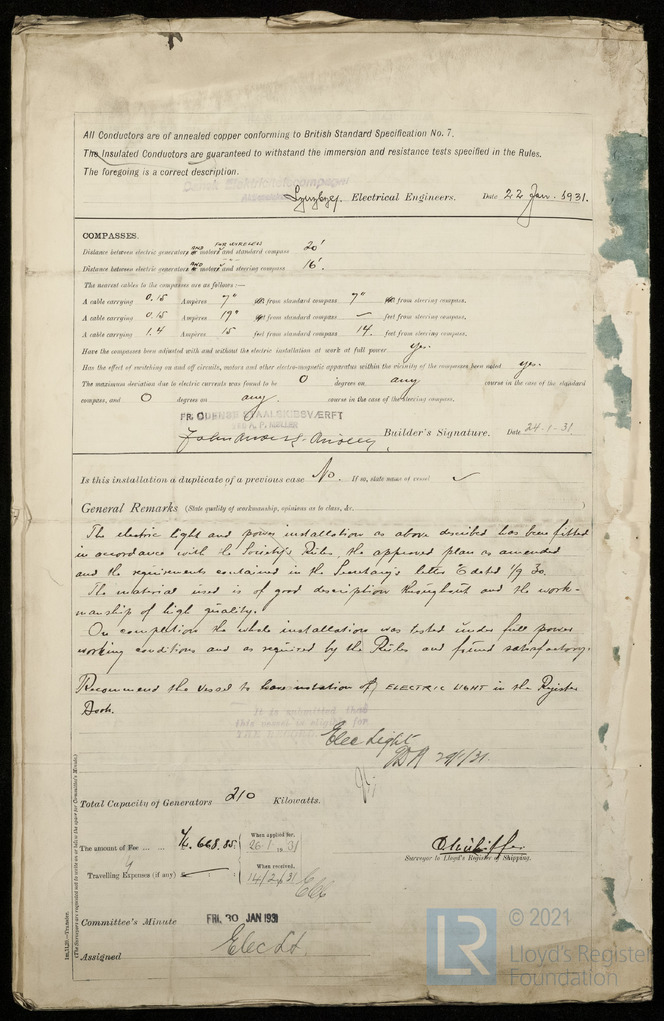 All Conductors are of annealed copper conforming to British Standard Specification No. 7.
The Insulated Conductors are guaranteed to withstand the immersion and resistance tests specified in the Rules.
The foregoing is a correct description.
Electrical Engineers. Date 22 Jan. 1931.
COMPASSES.
AND FOR WIRELESS
Distance between electric generators or motors and standard compass 20'
AND
Distance between electric generators or motors and steering compass 16'.
The nearest cables to the compasses are as follows:—
A cable carrying 0.15 Ampères 7" from standard compass 7" from steering compass.
A cable carrying 0.15 Ampères 19" from standard compass — feet from steering compass.
A cable carrying 1.4 Ampères 15 feet from standard compass 14 feet from steering compass.
Have the compasses been adjusted with and without the electric installation at work at full power yes.
Has the effect of switching on and off circuits, motors and other electro-magnetic apparatus within the vicinity of the compasses been noted yes.
The maximum deviation due to electric currents was found to be 0 degrees on any course in the case of the standard
compass, and 0 degrees on any course in the case of the steering compass.
FR. ODENSE STAALSKIBSVÆRFT
VED A. P. MØLLER
Builder's Signature. Date 24-1-31
Is this installation a duplicate of a previous case No. If so, state name of vessel
General Remarks (State quality of workmanship, opinions as to class, &c.
The electric light and power installation as above described has been fitted
in accordance with the Society's Rules, the approved plan as amended
and the requirements contained in the Secretary's letter E dated 1/9 30.
The material used is of good description throughout and the work-
manship of high quality.
On completion the whole installation was tested under full power
working conditions and as required by the Rules and found satisfactory.
Recommend the vessel to have notation of ELECTRIC LIGHT in the Register
Book.
It is submitted that
this vessel is eligible for
THE RECORD
Elec Light
29/1/31.
Total Capacity of Generators 210 Kilowatts.
The amount of Fee ... ... Kr. 668.85: When applied for, 26-1 1931
Travelling Expenses (if any) When received, 14/2/31
Surveyor to Lloyd's Register of Shipping.
Committee's Minute FRI. 30 JAN 1931
Assigned Elec Lt
Im.11.29.—Transfer.
(The Surveyors are requested not to write on or below the space for Committee's Minute.)
LR
© 2021
Lloyd's Register
Foundation